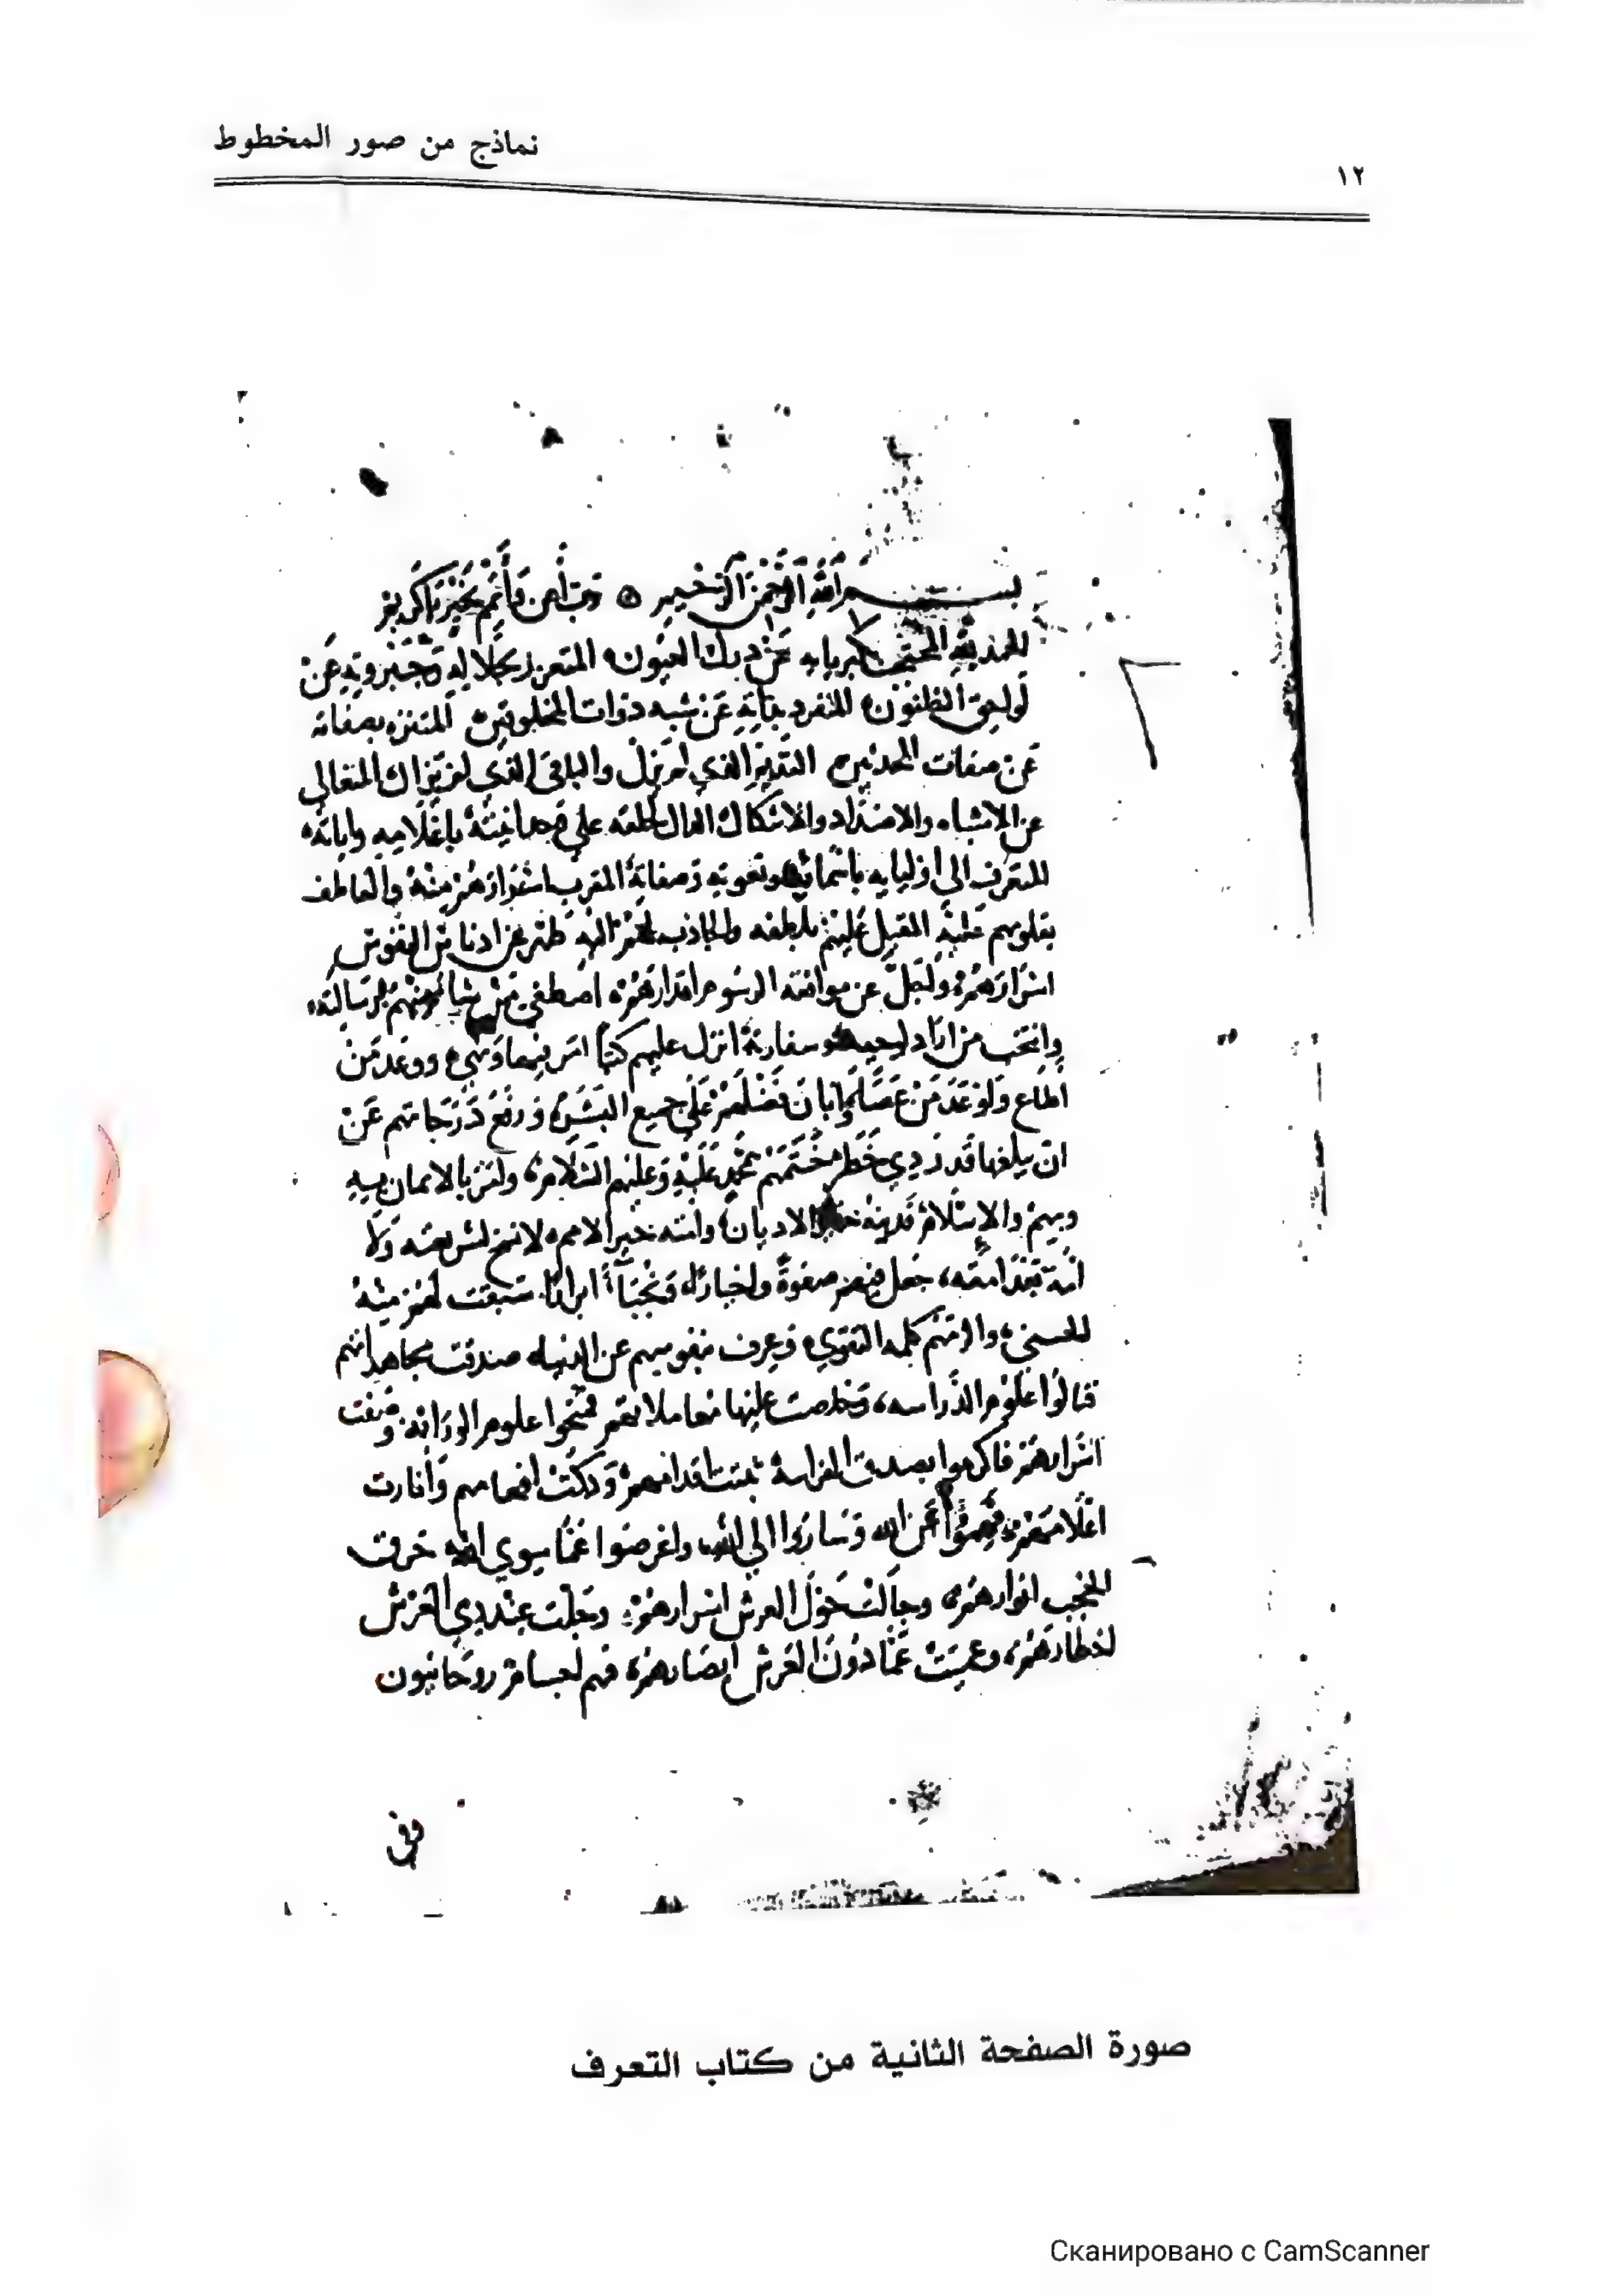 نماذج من صور المخطوط
١٢
بسم الله الرحمن الرحيم رب أعن وأتمم بخير يا كريم
الحمد لله المحتجب بكبريايه عن درك العيون المتعزز بجلاله وجبروته عن
لواحق الظنون المتفرد بذاته عن شبه ذوات المخلوقين المتنزه بصفاته
عن صفات المحدثين القديم الذي لم يزل والباقي الذي لن يزال المتعالي
عن الاشباه والاضداد والاشكال الدال لخلقه على وحدانيته باعلامه واياته
المتعرف الى اوليايه باسمائه ونعوته وصفاته المقرب اسرارهم منه والعاطف
بقلوبهم عليه المقبل عليهم بلطفه والجاذب لهم اليه طهر عن ادناس النفوس
اسرارهم واجل عن موافقة الرسوم اقدارهم اصطفى من شا منهم لرسالته
وانتخب من اراد لوحيه وسفارته انزل عليهم كتبا امر فيها ونهى ووعد من
اطاع واوعد من عصا وابان فضلهم على جميع البشر ورفع درجاتهم عن
ان يبلغها قدر ذي خطر ختمهم بمحمد عليه وعليهم السلام وامر بالايمان به
وبهم والاسلام فدينه خير الاديان وامته خير الامم لا نسخ لشريعته ولا
امة بعد امته جعل فيهم صفوة واخيارا ونجباء ابرارا سبقت لهم منه
الحسنى والزمهم كلمة التقوى وعزف بنفوسهم عن الدنيا صدقت مجاهداتهم
فنالوا علوم الدراسة وخلصت عليها معاملاتهم فمنحوا علوم الوراثة وصفت
اسرارهم فاكرموا بصدق الفراسة ثبتت اقدامهم وزكت افهامهم وانارت
اعلامهم فهموا عن الله وساروا الى الله واعرضوا عما سوى الله خرقت
الحجب انوارهم وجالت حول العرش اسرارهم وجلت عند ذي العرش
اخطارهم وعميت عما دون العرش ابصارهم فهم اجسام روحانيون
وفي
صورة الصفحة الثانية من كتاب التعرف
Сканировано с CamScanner